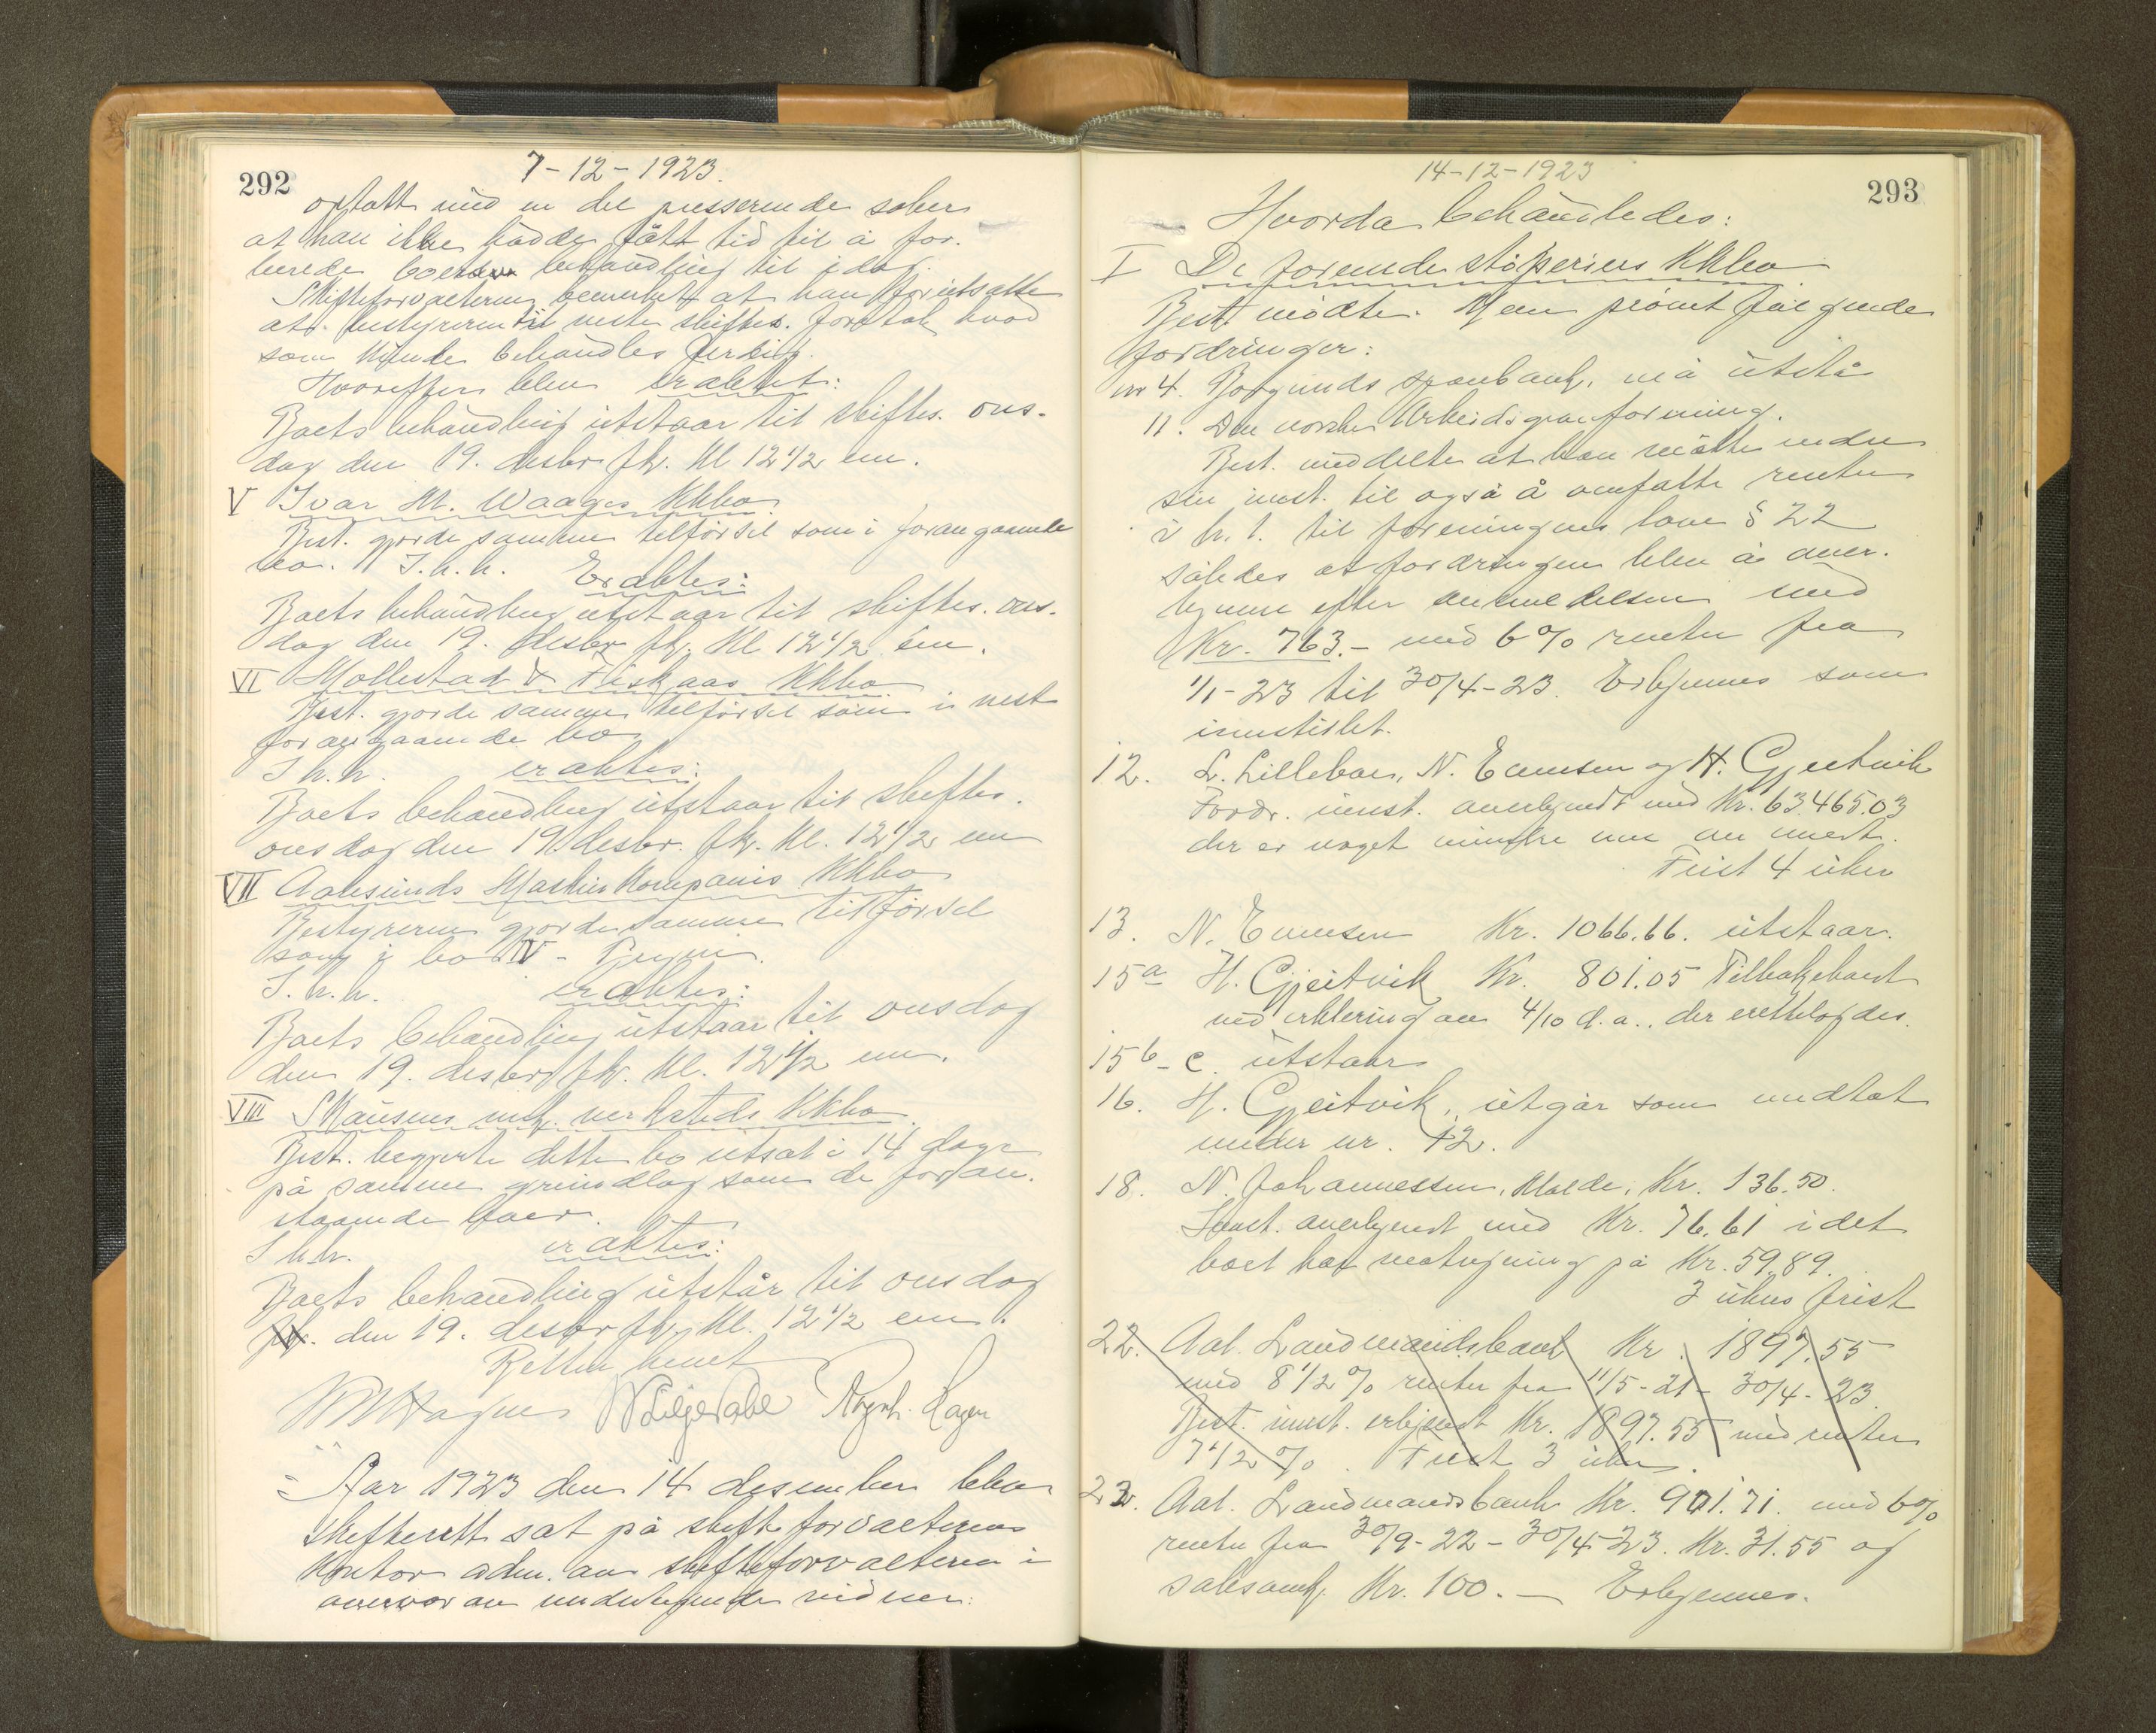 292
7-12-1923.
optatt med en del presserende saker
at han ikke hadde fått tid til å for-
berede boets behandling til idag.
Skifteforvalteren bemerket at han forutsatte
at bestyreren til neste skiftes. foretok hvad
som kunde behandles
Hvorefter blev eraktet:
Boets behandling utstaar til skiftes. ons-
dag den 19. desbr. fk. Kl 12 1/2 em.
V Ivar M. Waages Kkbo.
Best. gjorde samme tilførsel som i forangaaende
bo. S.h.h. Eraktes:
Boets behandling utstaar til skiftes. ons-
dag den 19. desbr fk. Kl 12 1/2 em.
VI Mollestad & Fiskaas Kkbo.
Best. gjorde samme tilførsel som i nest
forangaaende bo
S h.h. eraktes:
Boets behandling utstaar til skiftes.
onsdag den 19 desbr. fk. Kl. 12 1/2 em
VII Aalesunds Maskinkompanis Kkbo
Bestyreren gjorde samme tilførsel
som i bo IV -
S.h.h. eraktes:
Boets behandling utstaar til onsdag
den 19. desbr fk. Kl. 12 1/2 em.
VIII Skausens mek. verksteds Kkbo.
Best. begjerte dette bo utsat i 14 dage
på samme grundlag som de foran-
staaende boer.
S h.h. eraktes:
Boets behandling utstår til onsdag
den 19. desbr fk. Kl. 12 1/2 em.
Retten hevet
Aar 1923 den 14 desember blev
skifterett sat på skifteforvalterens
kontor adm. av skifteforvalteren i
overvær av undertegnede vidner:
14-12-1923
293
Hvorda behandledes:
I De forenede støperiers Kkbo
Best. mødte. Man prøvet følgende
fordringer:
nr 4. Borgunds sparebank, må utstå
11. Den norske Arbeidsgiverforening.
Best. meddelte at han måtte endre
sin innst. til også å omfatte renter
i h. t. til foreningens love § 22
således at fordringen blev å aner-
kjenne efter anmeldelsen med
Kr. 763.- med 6 % renter fra
1/1-23 til 30/4-23. Erkjennes som
innstillet.
12. L. Lillebøe, N. Eunesen og H. Gjeitvik
Fordr. innst. anerkjendt med Kr. 63.465.03
der er noget mindre enn anmeldt.
Frist 4 uker
13. N. Eunesen Kr. 1066.66. utstaar.
15a H. Gjeitvik Kr. 801.05 Tilbakekaldt
ved erklering av 4/10 d.a. der fremlagdes.
15 b - c. utstaar
16. H. Gjeitvik, utgår som medtat
under nr. 12.
18. N. Johannessen, Molde, Kr. 136.50.
Innst. anerkjendt med Kr. 76.61 idet
boet har motregning på Kr. 59.89.
3 ukers frist
22. Aal. Landmandsbank Kr. 1897.55
med 8 1/2 % renter fra 11/5-21 - 30/4-23.
Best. innst. erkjendt Kr. 1897.55 med renter
7 1/2 %. Frist 3 uker.
22. Aal. Landmandsbank Kr. 901.71. med 6%
renter fra 30/9-22 - 30/4-23. Kr. 31.55 og
saksomk. Kr. 100. — Erkjennes.